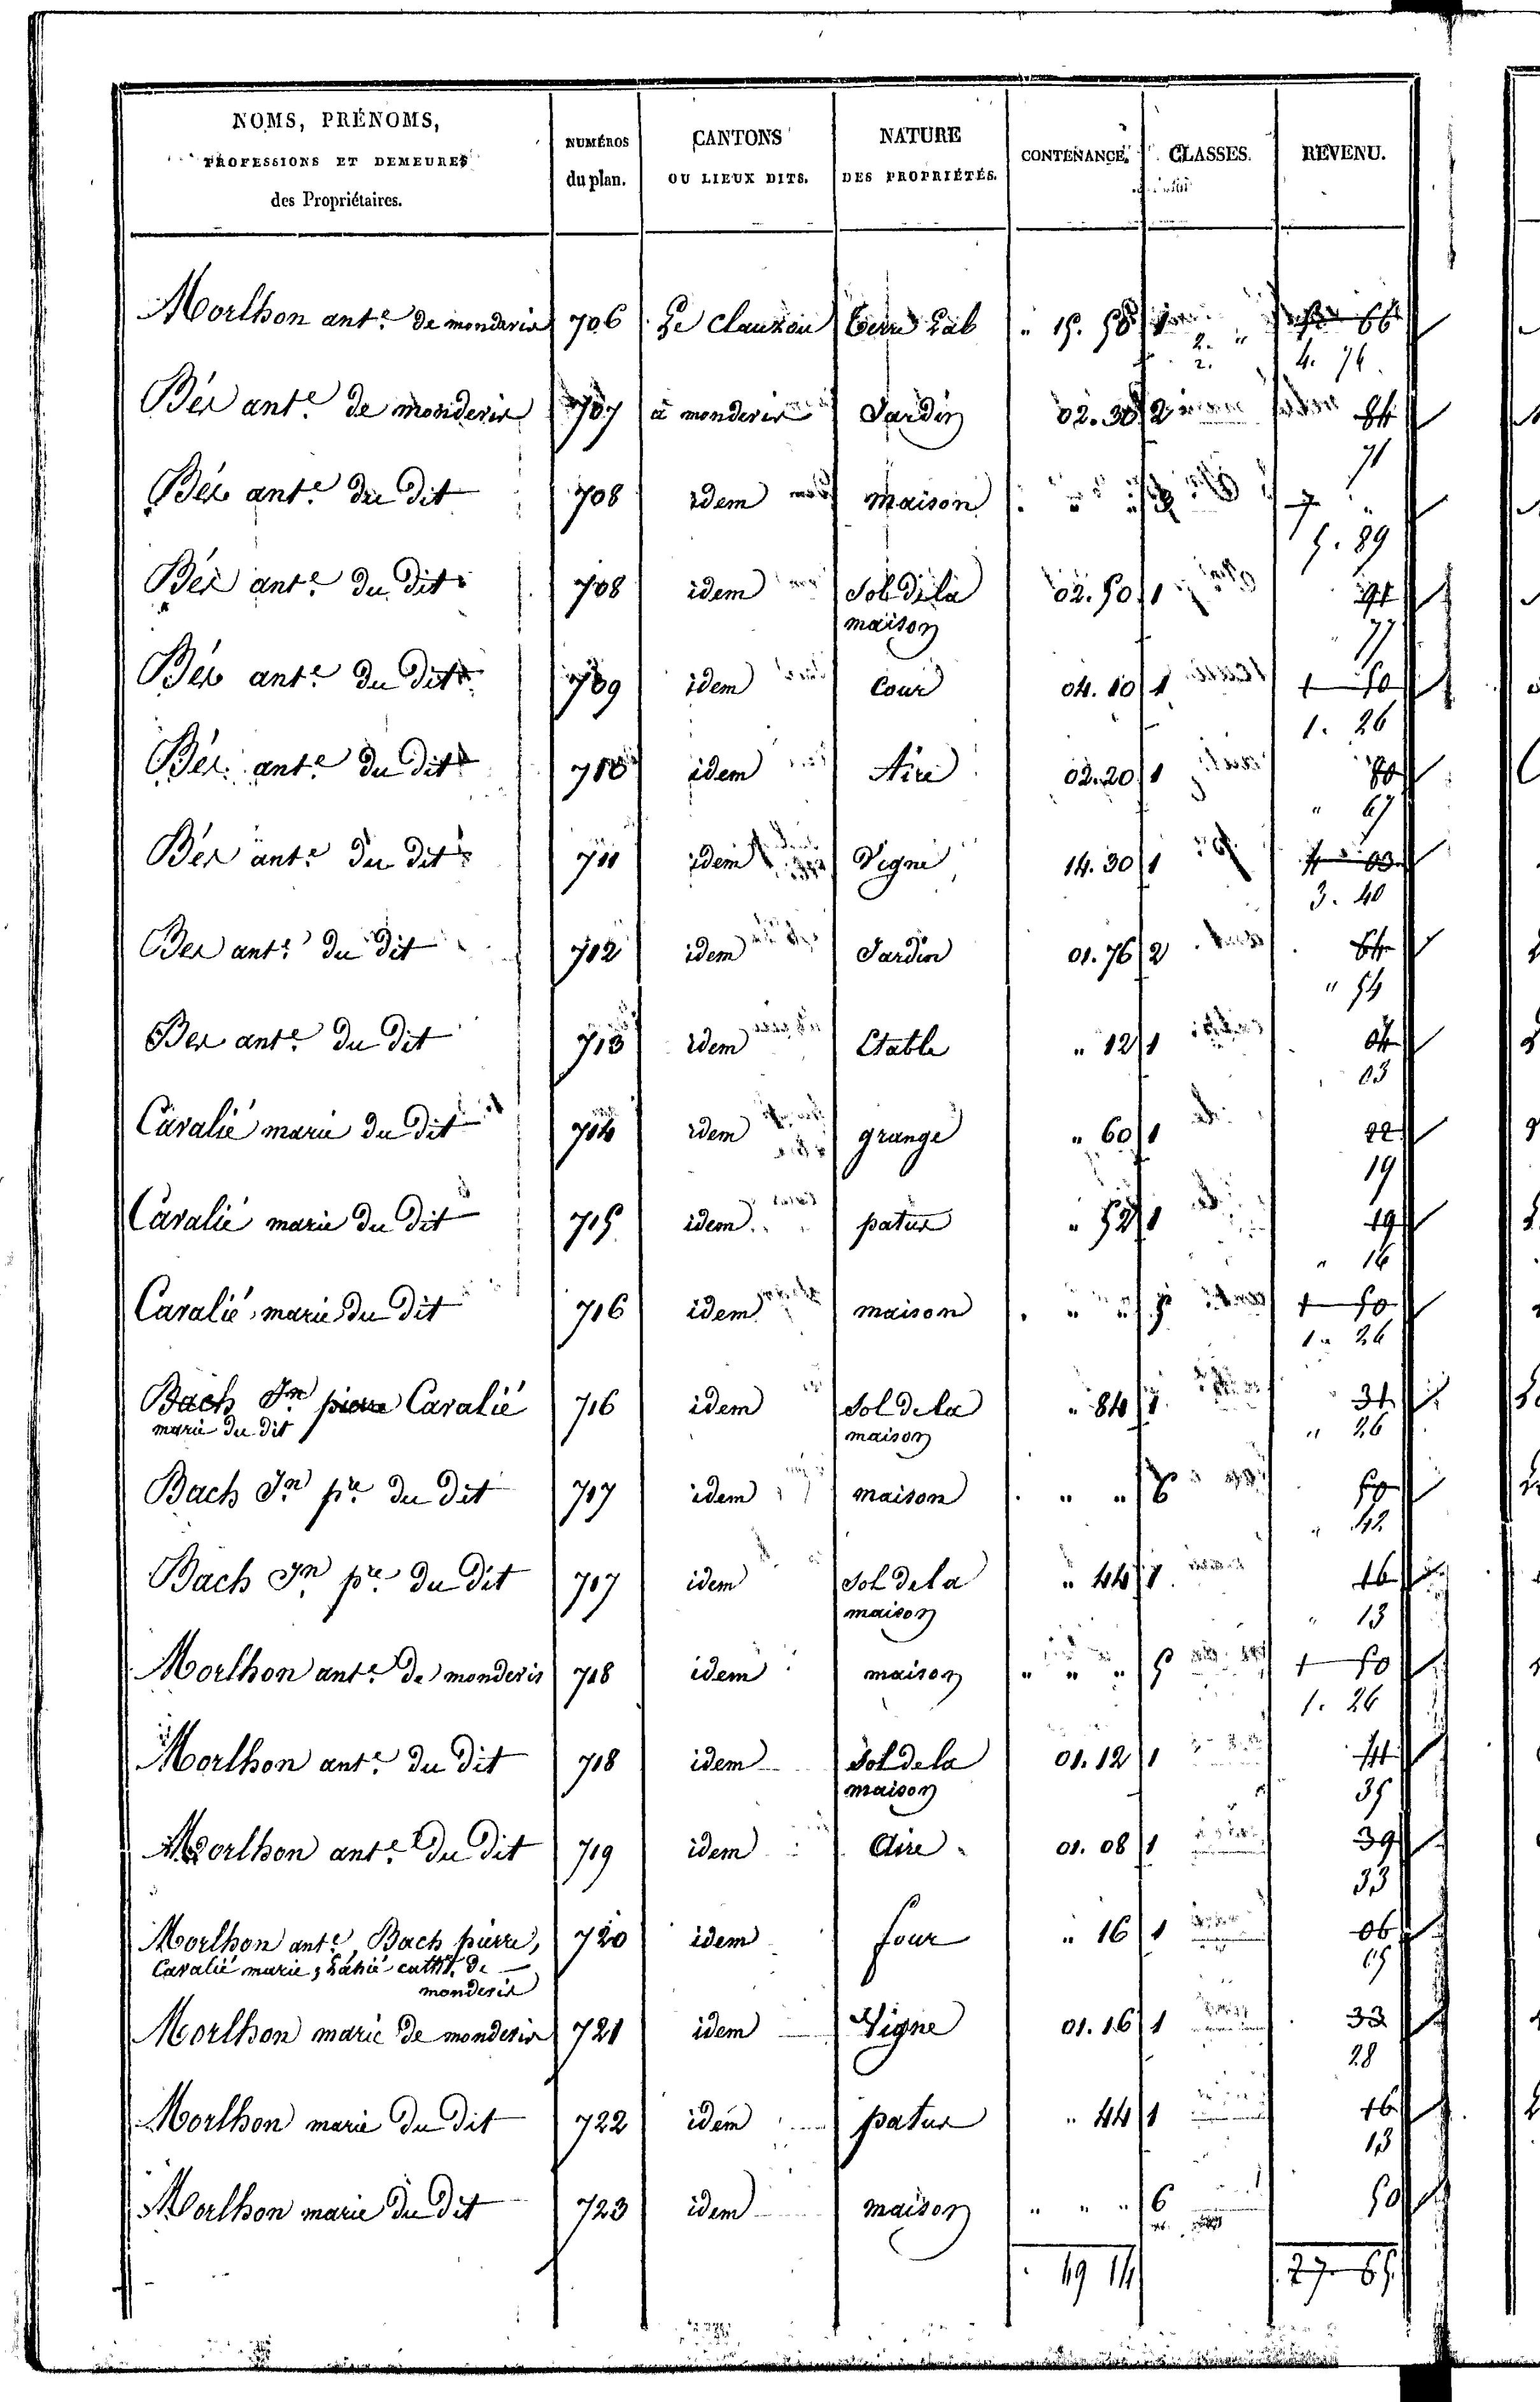 NOMS, PRÉNOMS, PROFESSIONS ET DEMEURES des Propriétaires. | NUMÉROS du plan. | CANTONS OU LIEUX DITS. | NATURE DES PROPRIÉTÉS. | CONTENANCE. | CLASSES. | REVENU.
Morlhon ant.e de monderis 706 Le Clauzou Terre Lab " 15. 58 1
2. " 4. 76
2.
Bér ant.e de monderis 707 à monderis Jardin 02. 30 2 84
71
Bér ant.e du dit 708 idem maison " " 7 "
5. 89
Bér ant.e du dit 708 idem Sol de la 02. 50 1 91
maison 77
Bér ant.e du dit 709 idem Cour 04. 10 1 1 50
1. 26
Bér ant.e du dit 710 idem Aire 02. 20 1 80
" 67
Bér ant.e du dit 711 idem Vigne 14. 30 1 4 03
3. 40
Ber ant.e du dit 712 idem Jardin 01. 76 2 64
" 54
Ber ant.e du dit 713 idem Etable " 12 1 04
03
Cavalié marie du dit 714 idem grange " 60 1 22
19
Cavalié marie du dit 715 idem patus " 52 1 19
" 16
Cavalié marie du dit 716 idem maison " " 5 1 50
1 " 26
Bach Jn pierre Cavalié 716 idem Sol de la " 84 1 31
marie du dit maison " 26
Bach Jn pre du dit 717 idem maison " " 6 50
" 42
Bach Jn pre du dit 717 idem Sol de la " 44 1 16
maison " 13
Morlhon ant.e de monderis 718 idem maison " " " 5 1 50
1. 26
Morlhon ant.e du dit 718 idem Sol de la 01. 12 1 41
maison 35
Morlhon ant.e du dit 719 idem Aire 01. 08 1 39
33
Morlhon ant.e, Bach pierre, 720 idem four " 16 1 06
Cavalié marie, cath.e de 05
monderis
Morlhon marie de monderis 721 idem Vigne 01. 16 1 33
28
Morlhon marie du dit 722 idem patus " 44 1 16
13
Morlhon marie du dit 723 idem maison " " " 6 50
49 14 27 65